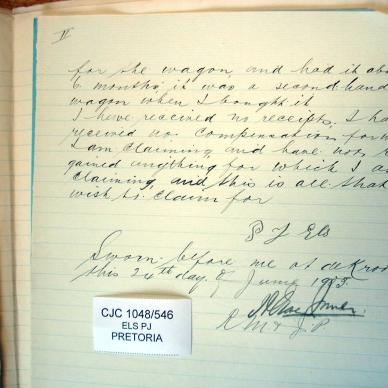 IV
for the wagon, and had it abo
6 months, it was a second-hand
wagon when I bought it
I have received no receipts, I ha
received no compensation for
I am claiming and have not r
gained anything for which I a
claiming, and this is all that
wish to claim for
P J Els
Sworn before me at
this 24th day of June 1903.
R M & J.P.
CJC 1048/546
ELS PJ
PRETORIA